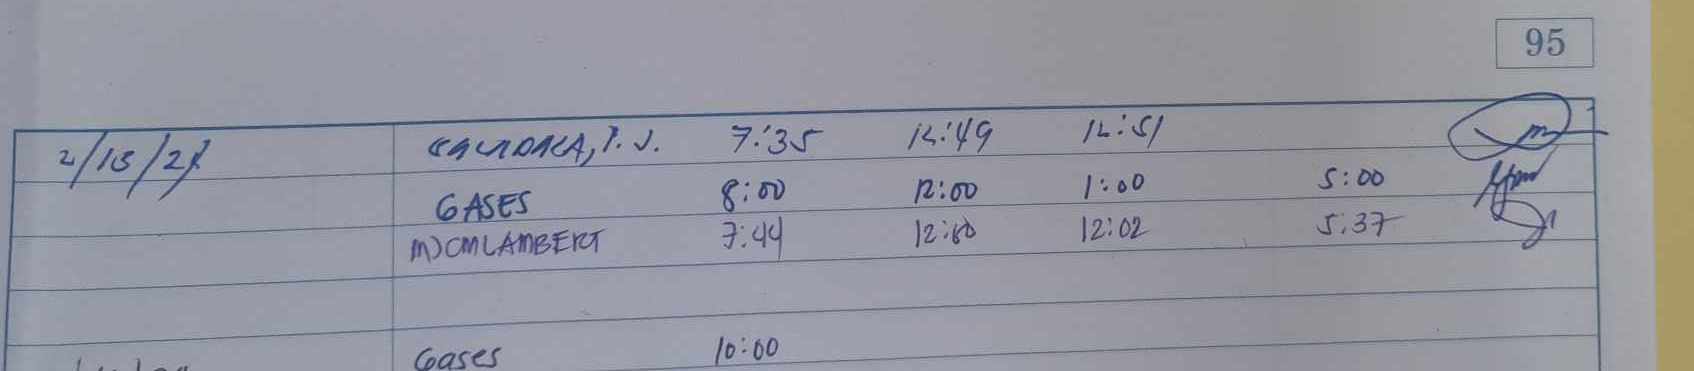 95
2/13/2 , P.J. 7:35 12:49 12:51
GASES 8:00 12:00 1:00 5:00
MJCMLAMBERT 7:44 12:00 12:02 5:37
Gases 10:00